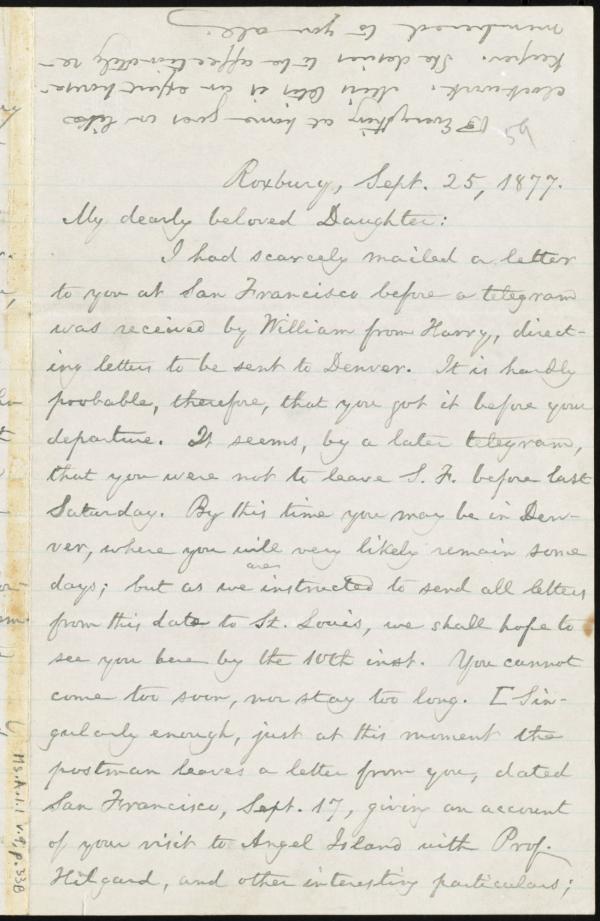 ☞ Everything at home goes on like
clockwork. Miss is an expert house-
keeper. She desires to be affectionately re-
membered to you all.
Roxbury, Sept. 25, 1877.
My dearly beloved Daughter:
I had scarcely mailed a letter
to you at San Francisco before a telegram
was received by William from Harry, direct-
ing letters to be sent to Denver. It is hardly
probable, therefore, that you got it before your
departure. It seems, by a later telegram,
that you were not to leave S. F. before last
Saturday. By this time you may be in Den-
ver, where you will very likely remain some
days; but as we are instructed to send all letters
from this date to St. Louis, we shall hope to
see you here by the 10th inst. You cannot
come too soon, nor stay too long. [Sin-
gularly enough, just at this moment the
postman leaves a letter from you, dated
San Francisco, Sept. 17, giving an account
of your visit to Angel Island with Prof.
Hilgard, and other interesting particulars;
Ms.A.1.1 v.9, p.33B